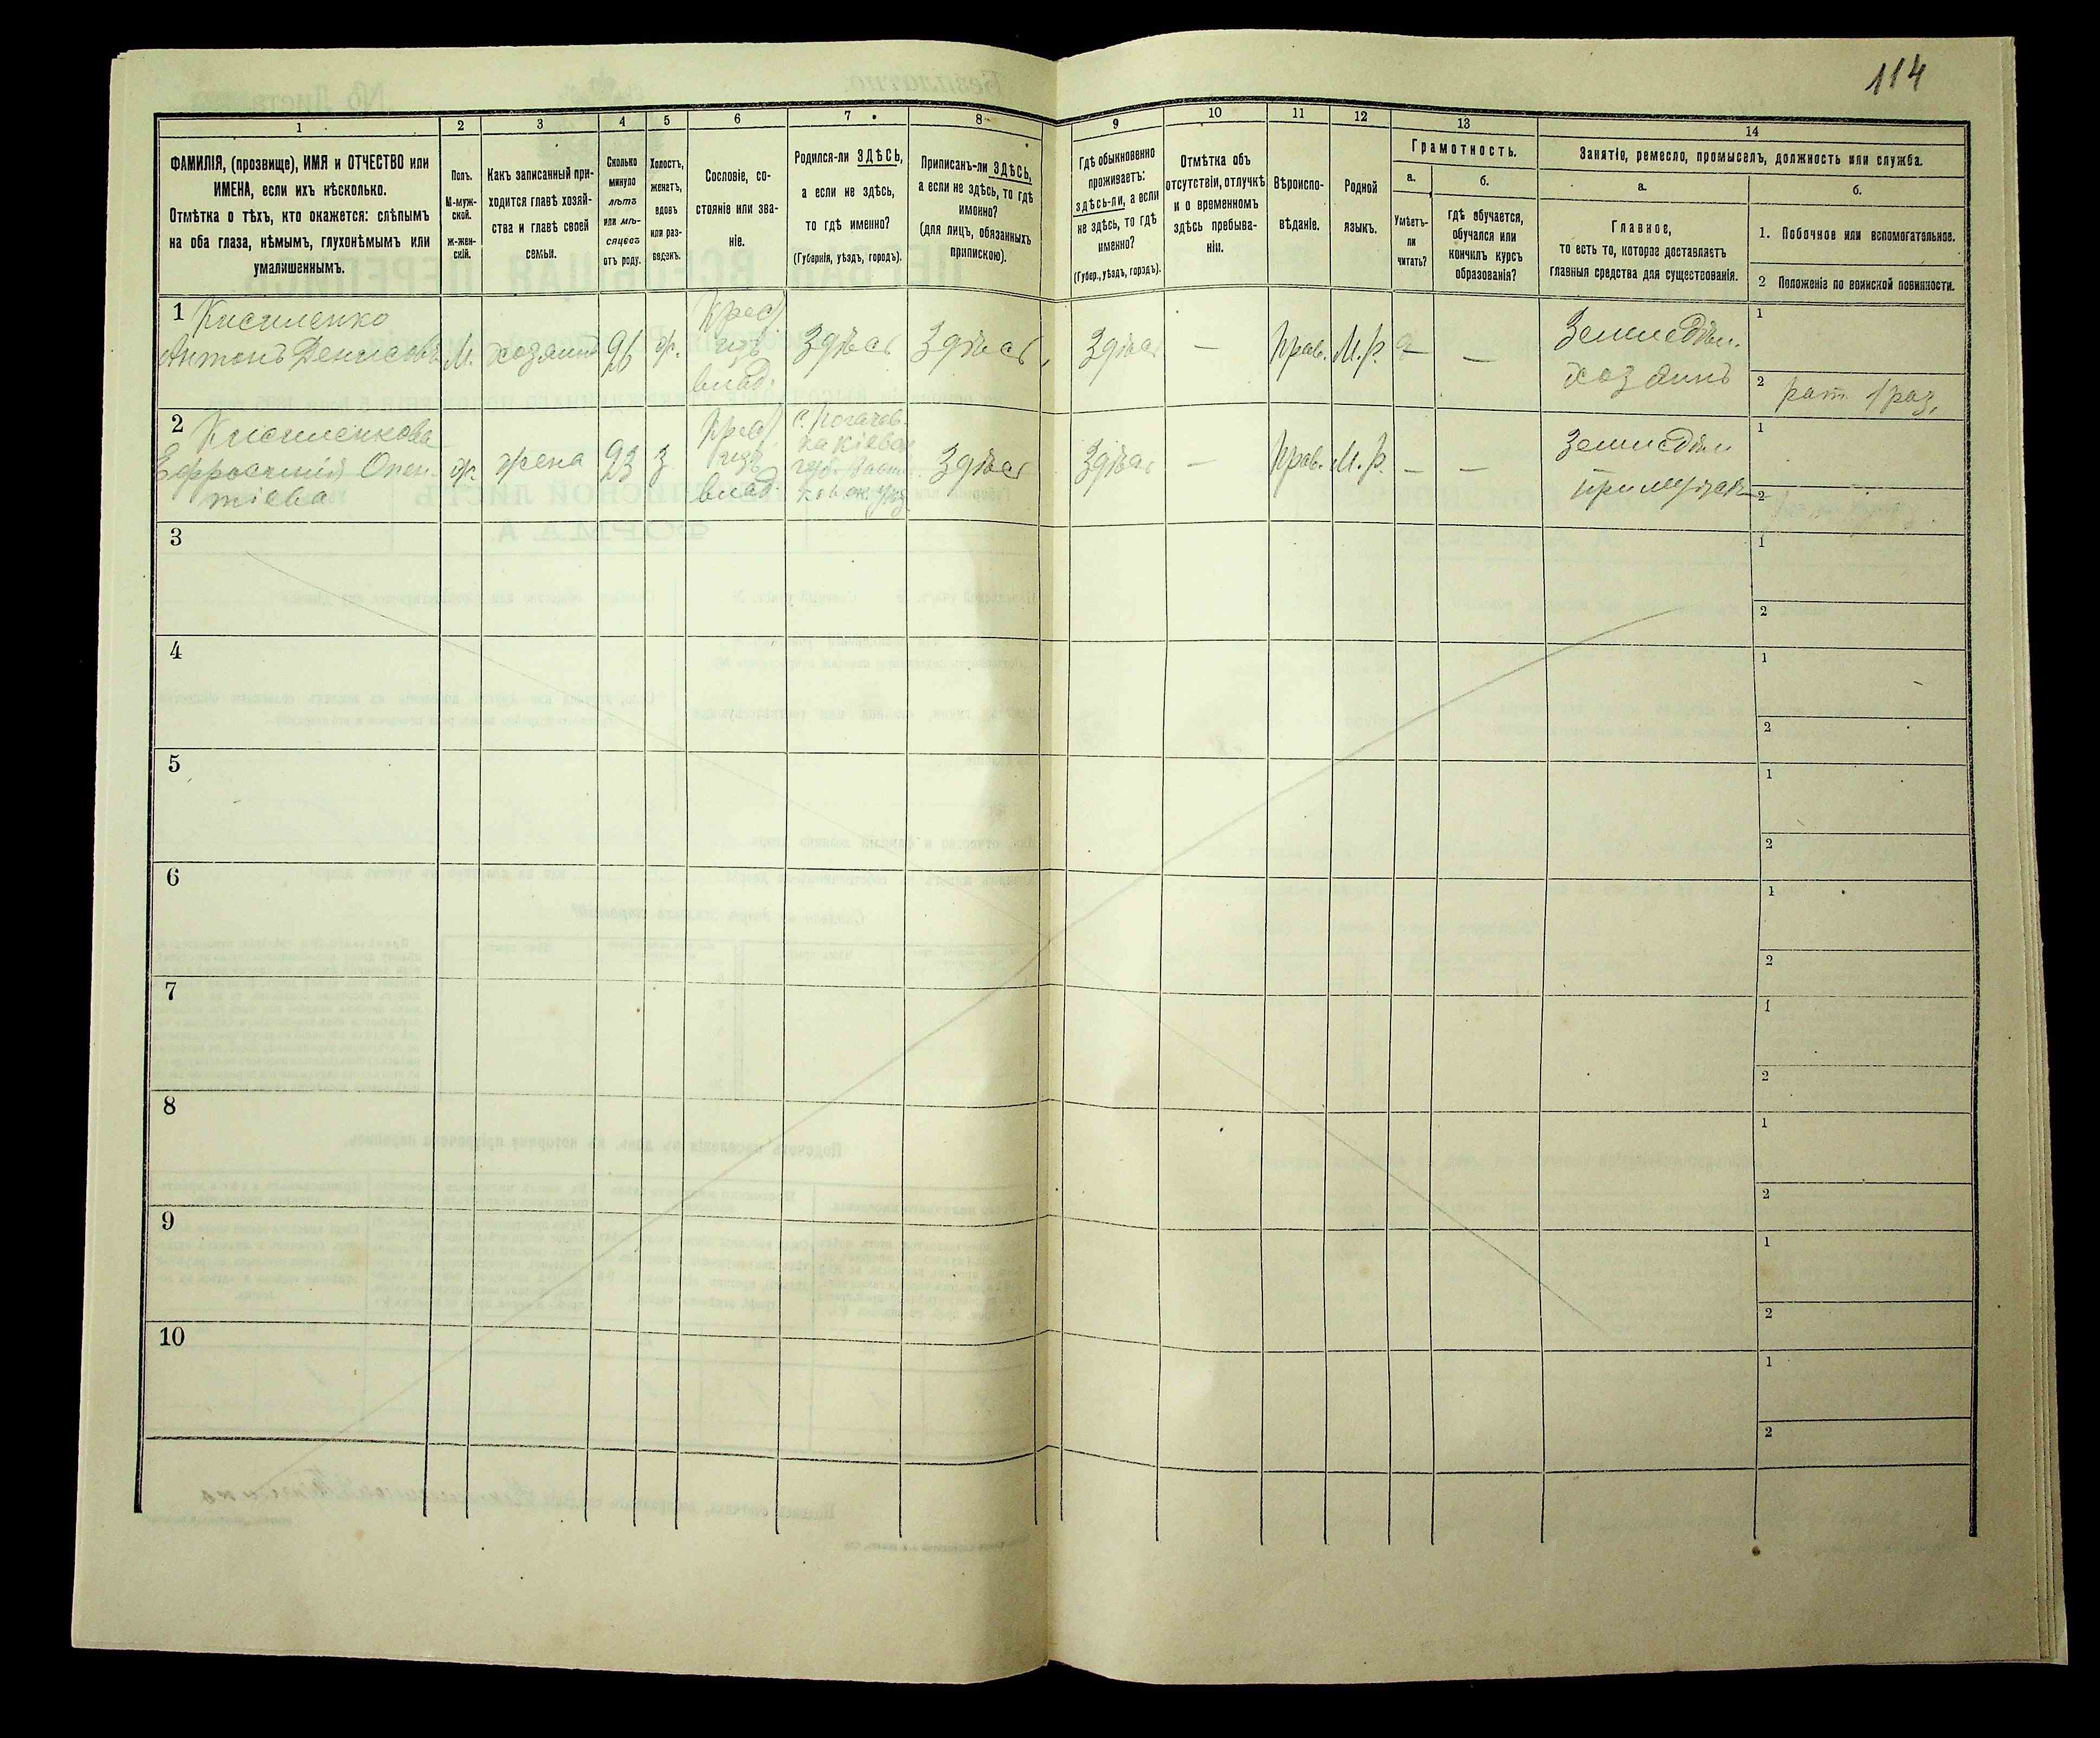 114
1 2 3 4 5 6 7 8 9 10 11 12 13 14
ФАМИЛІЯ, (прозвище), ИМЯ и ОТЧЕСТВО или
ИМЕНА, если ихъ нѣсколько.
Отмѣтка о тѣхъ, кто окажется: слѣпымъ
на оба глаза, нѣмымъ, глухонѣмымъ или
умалишеннымъ.
Полъ.
М-муж-
ской.
ж-жен-
скій.
Какъ записанный при-
ходится главѣ хозяй-
ства и главѣ своей
семьи.
Сколько
минуло
лѣтъ
или мѣ-
сяцевъ
отъ роду.
Холостъ,
женатъ,
вдовъ
или раз-
веденъ.
Сословіе, со-
стояніе или зва-
ніе.
Родился-ли ЗДѢСЬ,
а если не здѣсь,
то гдѣ именно?
(Губернія, уѣздъ, городъ).
Приписанъ-ли ЗДѢСЬ,
а если не здѣсь, то гдѣ
именно?
(для лицъ, обязанныхъ
припискою).
Гдѣ обыкновенно
проживаетъ:
здѣсь-ли, а если
не здѣсь, то гдѣ
именно?
(Губер., уѣздъ, городъ).
Отмѣтка объ
отсутствіи, отлучкѣ
и о временномъ
здѣсь пребыва-
ніи.
Вѣроиспо-
вѣданіе.
Родной
языкъ.
Грамотность.
а.
Умѣетъ-
ли
читать?
б.
гдѣ обучается,
обучался или
кончилъ курсъ
образованія?
Занятіе, ремесло, промыселъ, должность или служба.
а.
Главное,
то есть то, которое доставляетъ
главныя средства для существованія.
б.
1. Побочное или вспомогательное.
2 Положеніе по воинской повинности.
1 Кисиленко
Антонъ Денисовъ
М.
хозяинъ
26
ж.
Крест.
изъ
влад.
Здѣсь
Здѣсь
Здѣсь
—
Прав.
М.р.
—
—
Земледѣл.
хозяинъ
1
2 рат. 1 раз.
2 Кисиленкова
ж.
жена
23
з.
Крест.
изъ
влад.
Здѣсь
Здѣсь
—
Прав.
М.р.
—
—
Земледѣл.
1
2
3
1
2
4
1
2
5
1
2
6
1
2
7
1
2
8
1
2
9
1
2
10
1
2